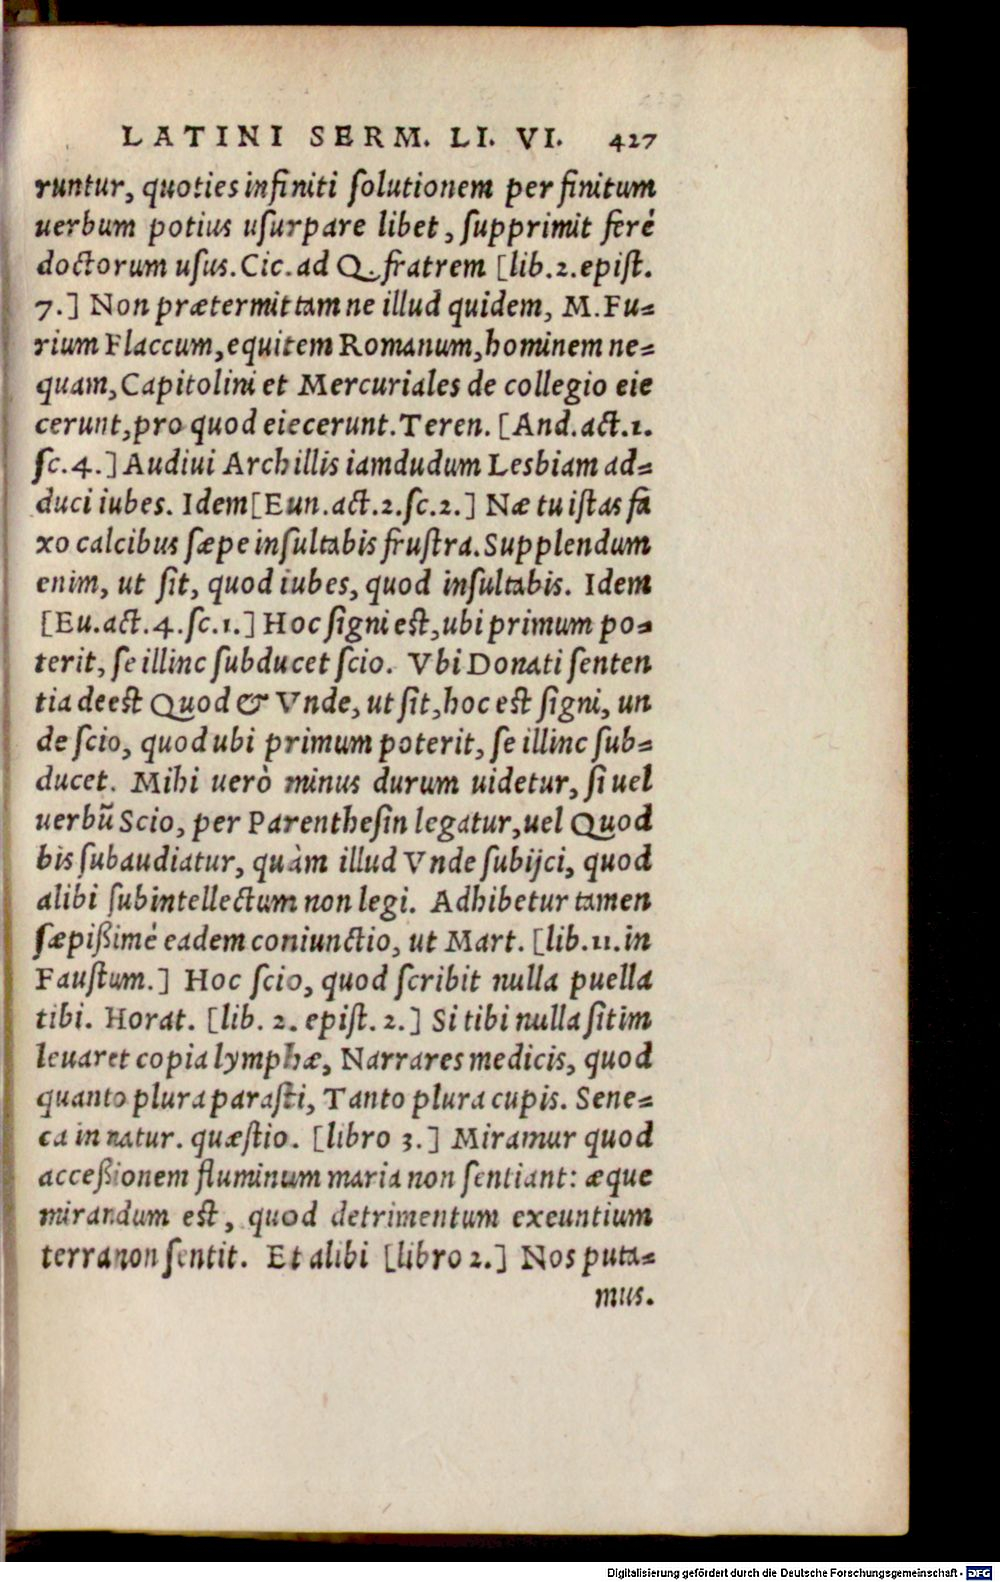 LATINI SERM. LI. VI. 427
runtur, quoties infiniti ſolutionem per finitum
uerbum potius uſurpare libet, ſupprimit ferè
doctorum uſus. Cic. ad Q. fratrem [lib. 2. epiſt.
7.] Non prætermittam ne illud quidem, M. Fu-
rium Flaccum, equitem Romanum, hominem ne-
quam, Capitolini et Mercuriales de collegio eie
cerunt, pro quod eiecerunt. Teren. [And. act. 1.
ſc. 4.] Audiui Archillis iamdudum Lesbiam ad-
duci iubes. Idem [Eun. act. 2. ſc. 2.] Næ tu iſtas fa
xo calcibus ſæpe inſultabis fruſtra. Supplendum
enim, ut ſit, quod iubes, quod inſultabis. Idem
[Eu. act. 4. ſc. 1.] Hoc ſigni eſt, ubi primum po-
terit, ſe illinc ſubducet ſcio. Vbi Donati ſenten
tia deeſt Quod & Vnde, ut ſit, hoc eſt ſigni, un
de ſcio, quod ubi primum poterit, ſe illinc ſub-
ducet. Mihi uerò minus durum uidetur, ſi uel
uerbũ Scio, per Parentheſin legatur, uel Quod
bis ſubaudiatur, quàm illud Vnde ſubijci, quod
alibi ſubintellectum non legi. Adhibetur tamen
ſæpißimè eadem coniunctio, ut Mart. [lib. 11. in
Fauſtum.] Hoc ſcio, quod ſcribit nulla puella
tibi. Horat. [lib. 2. epiſt. 2.] Si tibi nulla ſitim
leuaret copia lymphæ, Narrares medicis, quod
quanto plura paraſti, Tanto plura cupis. Sene-
ca in natur. quæſtio. [libro 3.] Miramur quod
acceßionem fluminum maria non ſentiant: æque
mirandum eſt, quod detrimentum exeuntium
terra non ſentit. Et alibi [libro 2.] Nos puta-
mus.
Digitalisierung gefördert durch die Deutsche Forschungsgemeinschaft - DFG